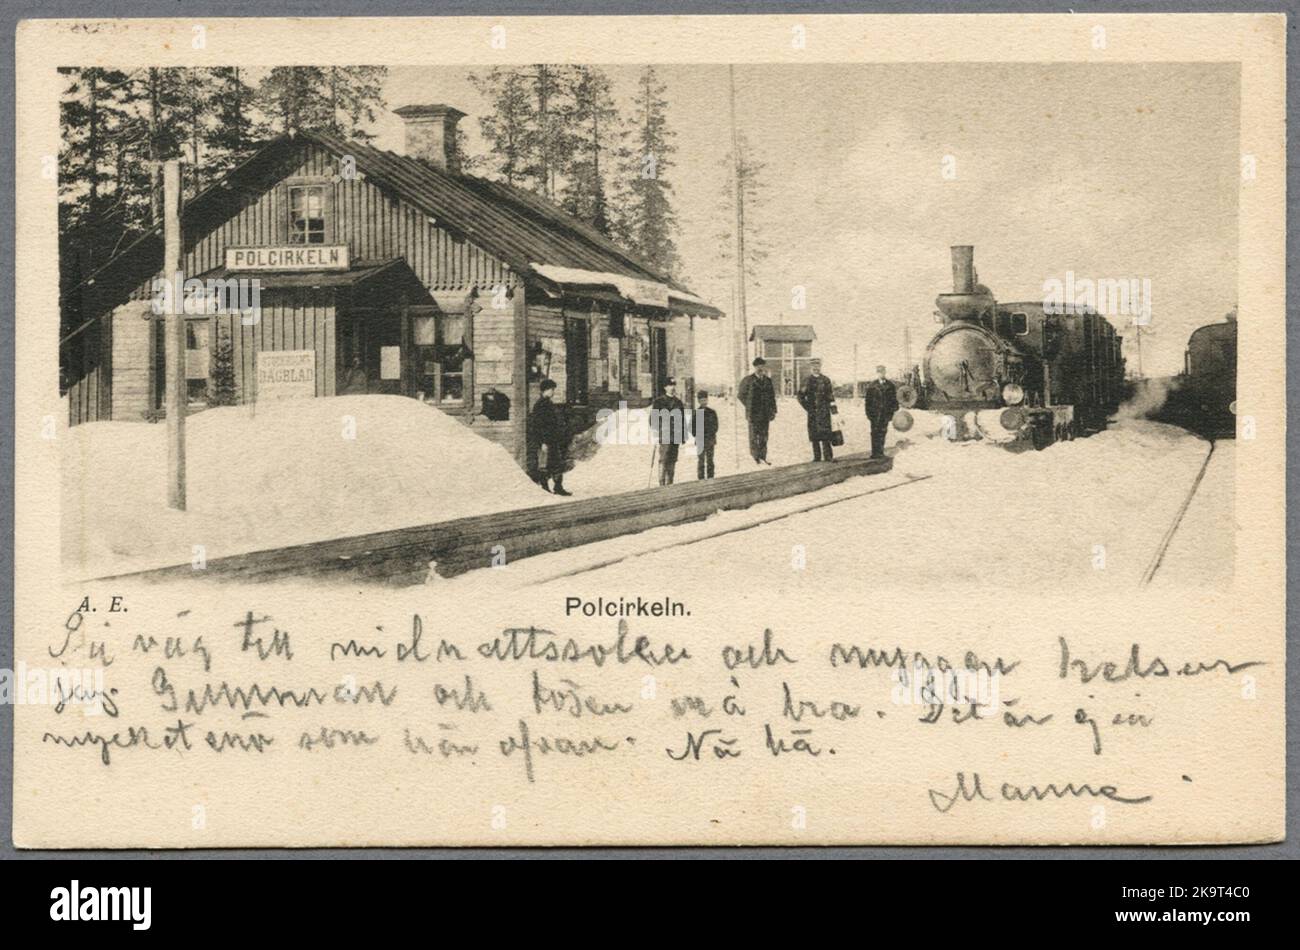 POLCIRKELN
DAGBLAD
A. E.
Polcirkeln.
På väg till midnattssolen och myggen helsar
jag Gumman och tösen må bra. Det är ej så
mycket snö som här ofvan. Nå hå.
Manne
alamy
Image ID: 2K9T4C0
www.alamy.com